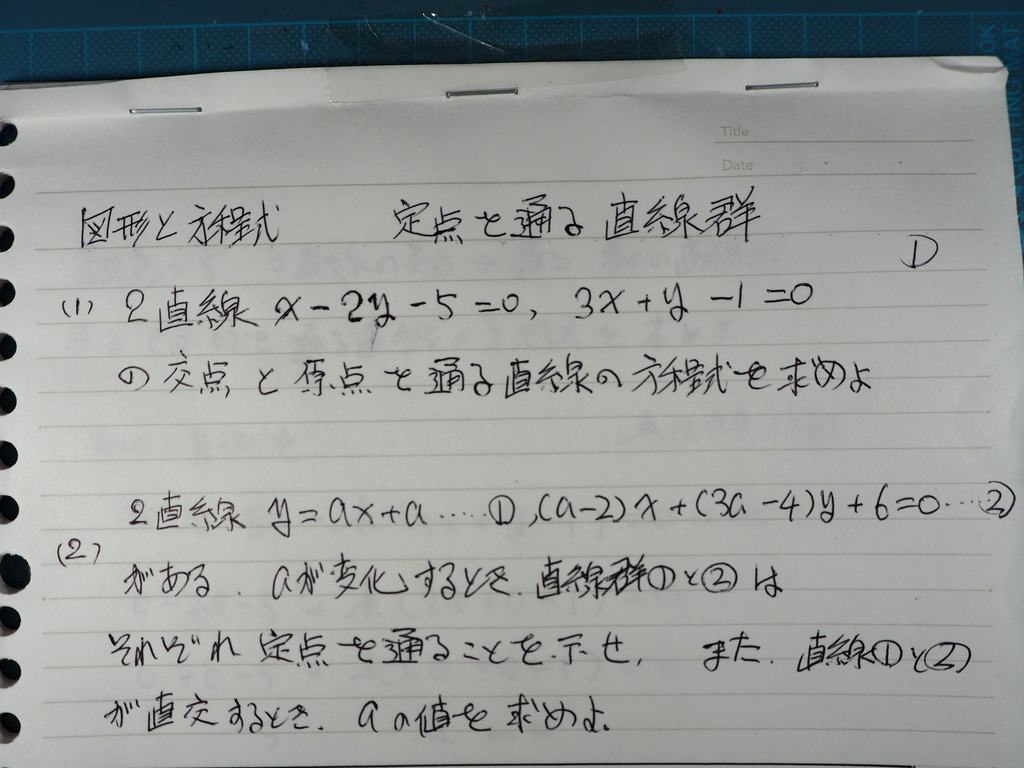 Title
Date
図形と方程式 定点を通る直線群
①
(1) 2直線 x-2y-5=0, 3x+y-1=0
の交点と原点を通る直線の方程式を求めよ
2直線 y=ax+a ……①, (a-2)x+(3a-4)y+6=0 …②
(2)
がある. aが変化するとき. 直線群①と②は
それぞれ定点を通ることを示せ, また. 直線①と②
が直交するとき. aの値を求めよ.